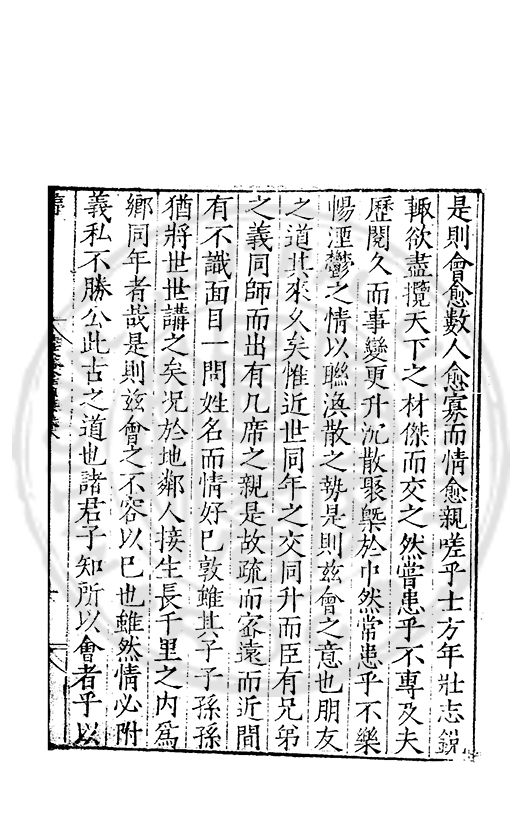 是則會愈數人愈寡而情愈親嗟乎士方年壯志銳
輒欲盡攬天下之材傑而交之然嘗患乎不專及夫
歷閱久而事變更升沉散聚槩於中然常患乎不樂
暢湮鬱之情以聯渙散之勢是則玆會之意也朋友
之道其來久矣惟近世同年之交同升而臣有兄弟
之義同師而出有几席之親是故疏而密遠而近間
有不識面目一問姓名而情好已敦雖其子子孫孫
猶將世世講之矣况於地鄰人接生長千里之內爲
鄉同年者哉是則玆會之不容以已也雖然情必附
義私不勝公此古之道也諸君子知所以會者乎以